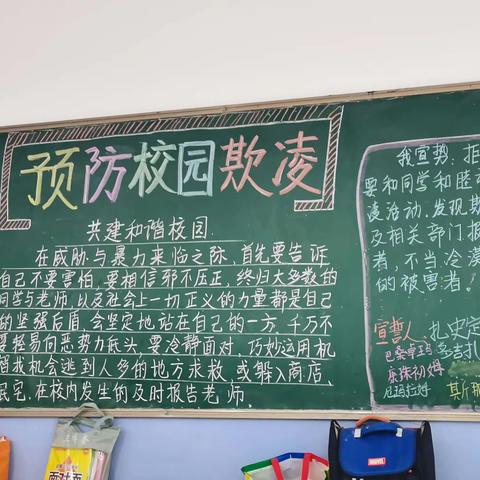 预防校园欺凌
共建和谐校园
在威胁与暴力来临之际,首先要告诉
自己不要害怕,要相信邪不压正,终归大多数的
同学与老师,以及社会上一切正义的力量都是自己
的坚强后盾,会坚定地站在自己的一方,千万不
要轻易向恶势力低头,要冷静面对,巧妙运用机
智我机会逃到人多的地方求救,或躲入商店、
民宅,在校内发生的及时报告老师
我宣势:拒
要和同学和
凌活动,发现欺
及相关部门报
者,不当冷漠
的被害者!
宣誓人:扎史定
巴桑卓玛
康珠初姆
尼玛拉姆
多吉扎
斯那
MARVEL